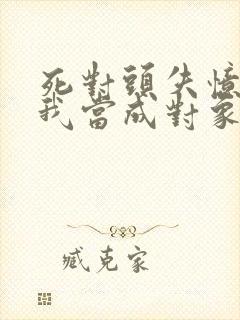 死對頭失憶
我當成對象
臧克家